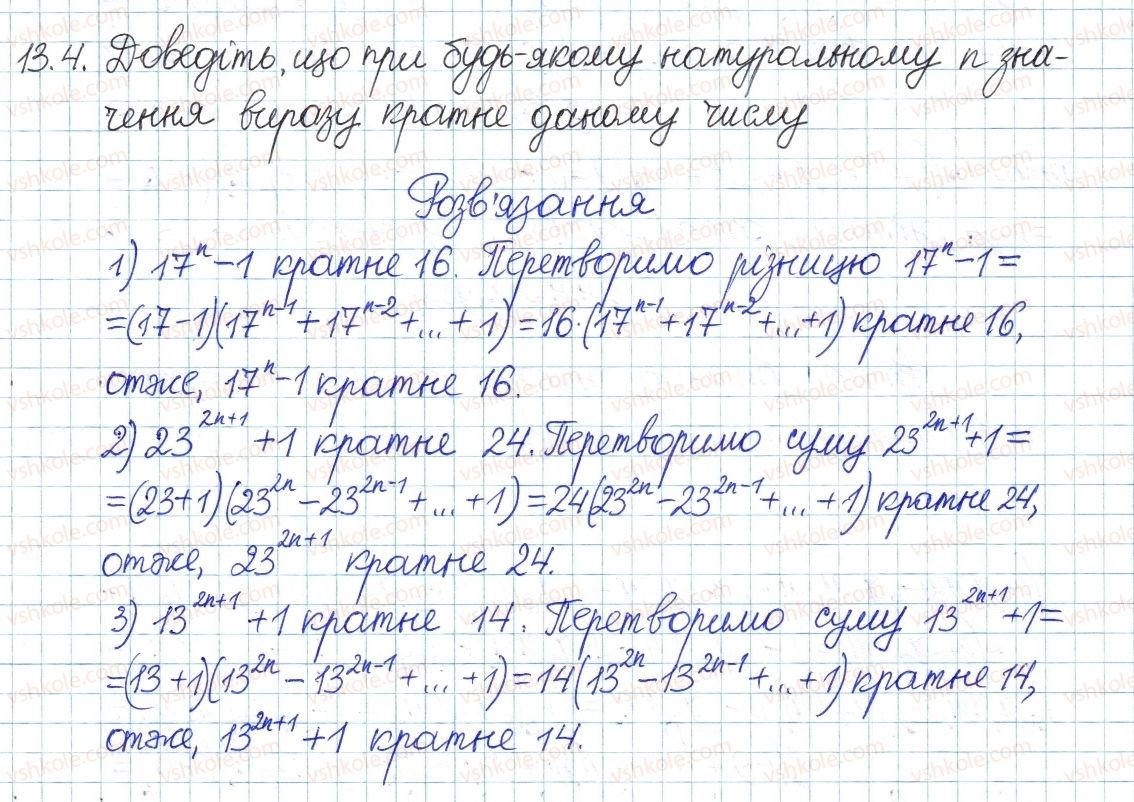 13.4. Доведіть, що при будь-якому натуральному n зна-
чення виразу кратне даному числу
Розв'язання
1) 17ⁿ-1 кратне 16. Перетворимо різницю 17ⁿ-1=
=(17-1)(17ⁿ⁻¹+17ⁿ⁻²+...+1)=16·(17ⁿ⁻¹+17ⁿ⁻²+...+1) кратне 16,
отже, 17ⁿ-1 кратне 16.
2) 23²ⁿ⁺¹+1 кратне 24. Перетворимо суму 23²ⁿ⁺¹+1=
=(23+1)(23²ⁿ-23²ⁿ⁻¹+...+1)=24(23²ⁿ-23²ⁿ⁻¹+...+1) кратне 24,
отже, 23²ⁿ⁺¹ кратне 24.
3) 13²ⁿ⁺¹+1 кратне 14. Перетворимо суму 13²ⁿ⁺¹+1=
=(13+1)(13²ⁿ-13²ⁿ⁻¹+...+1)=14(13²ⁿ-13²ⁿ⁻¹+...+1) кратне 14,
отже, 13²ⁿ⁺¹+1 кратне 14.
vshkole.com